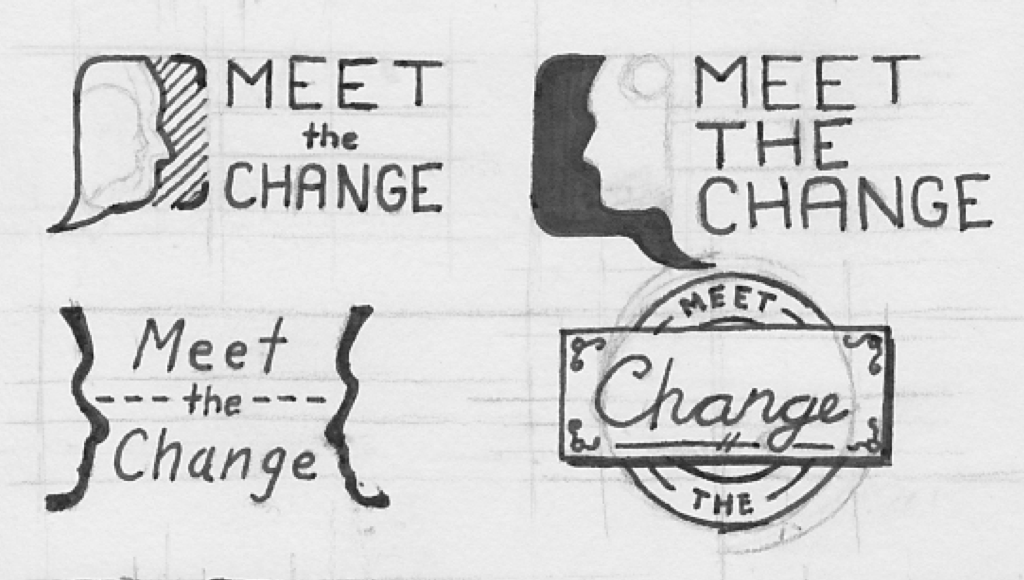 MEET
the
CHANGE
MEET
THE
CHANGE
Meet
the
Change
MEET
Change
THE